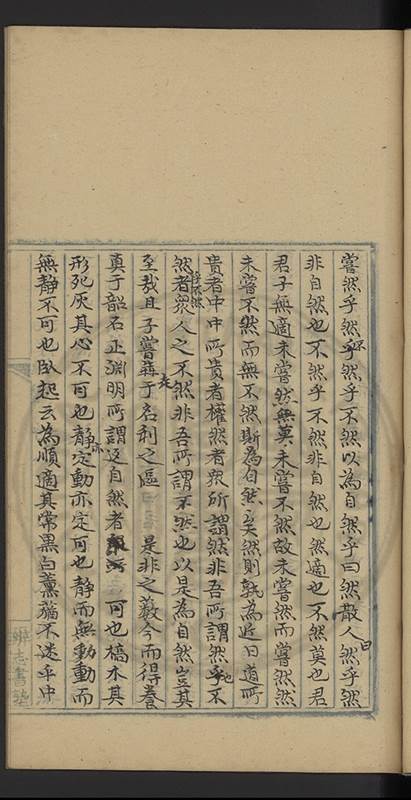 嘗然乎然乎然乎不然以為自然乎曰然散人曰然乎然
非自然也不然乎不然非自然也然適也不然莫也君
君子無適未嘗然無莫未嘗不然故未嘗然而嘗然然
未嘗不然而無不然斯為自然矣然則孰為近曰道所
貴者中中所貴者權然者眾所謂然非吾所謂然也不
然者眾人之不然非吾所謂不然也以是為自然豈其
至哉且子嘗走于名利之區是非之藪今而得養
真于韶石正淵明所謂返自然者可也槁木其
形死灰其心不可也靜亦定動亦定可也靜而無動動而
無靜不可也臥起云為順適其常黑白薰蕕不迷乎中
辨志書塾